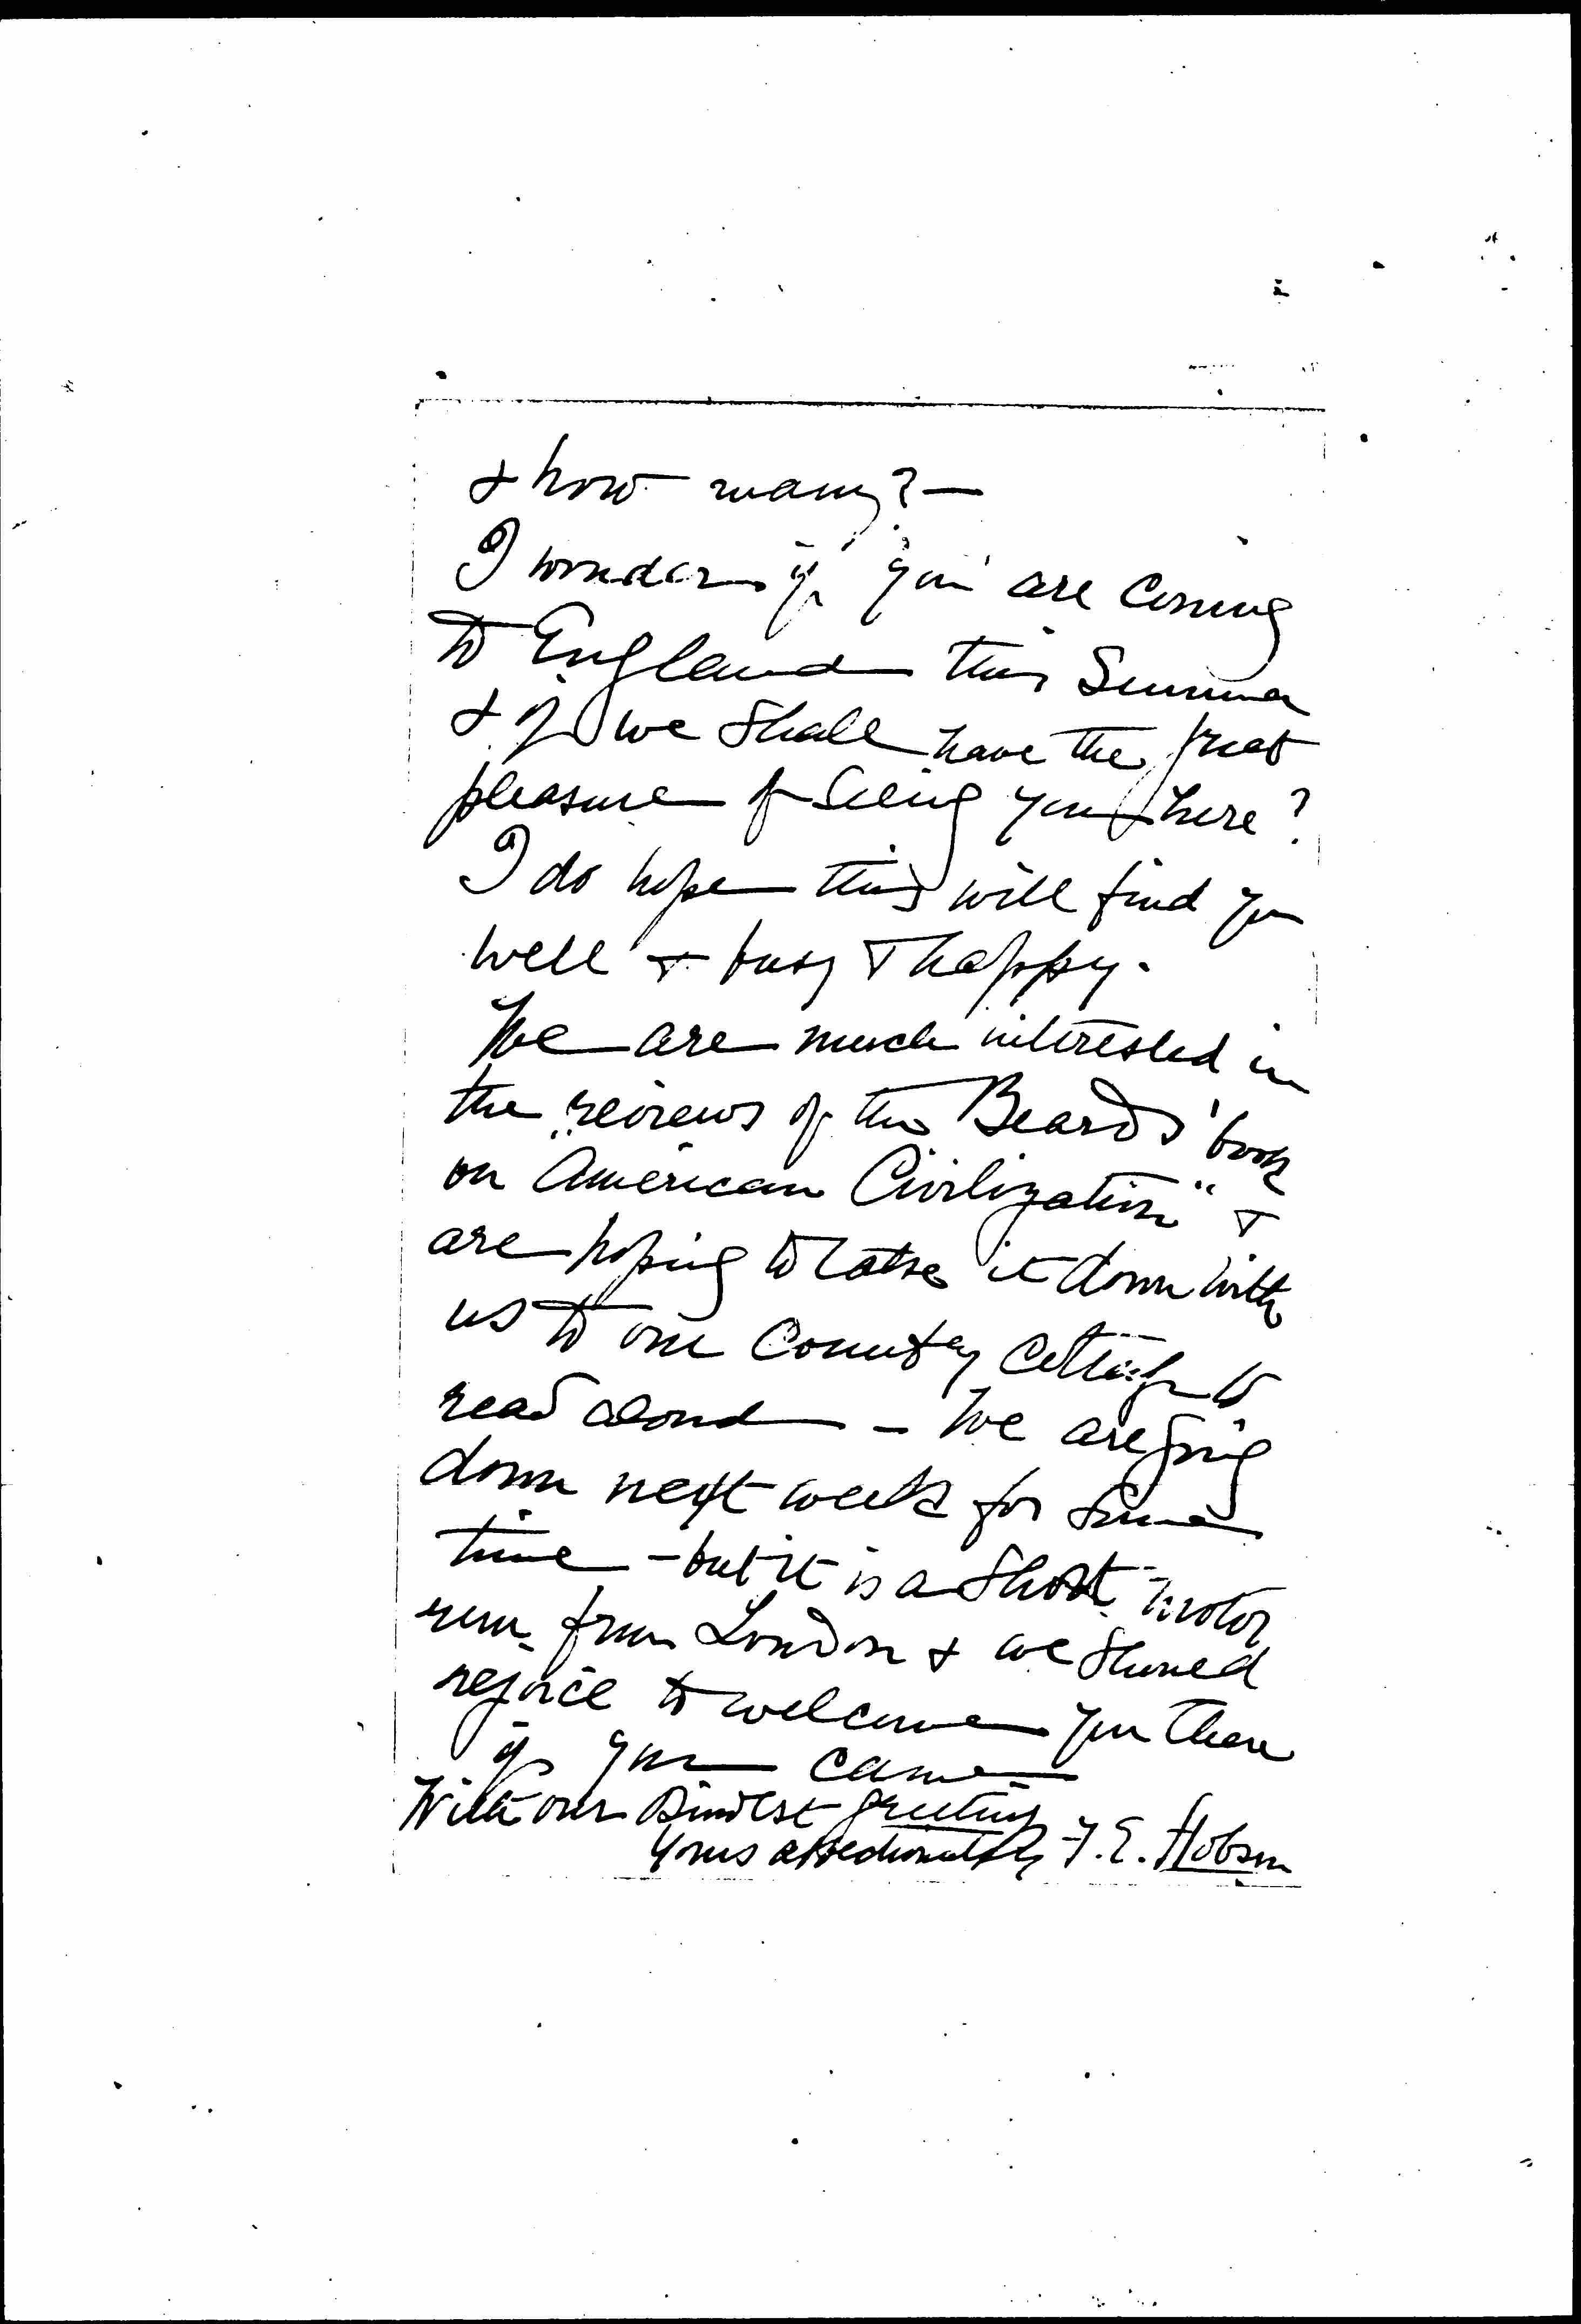 & how many? —
I wonder if you are coming
to England this Summer
& if we shall have the great
pleasure of seeing you here?
I do hope this will find you
well & busy & happy.
We are much interested in
the reviews of the Beards' book
on "American Civilization" &
are hoping to take it down with
us to our Country Cottage to
read aloud — We are going
down next week for some
time — but it is a short motor
run from London & we should
rejoice to welcome you there
if you came
With our kindest greetings
Yours affectionately F. E. Hobson